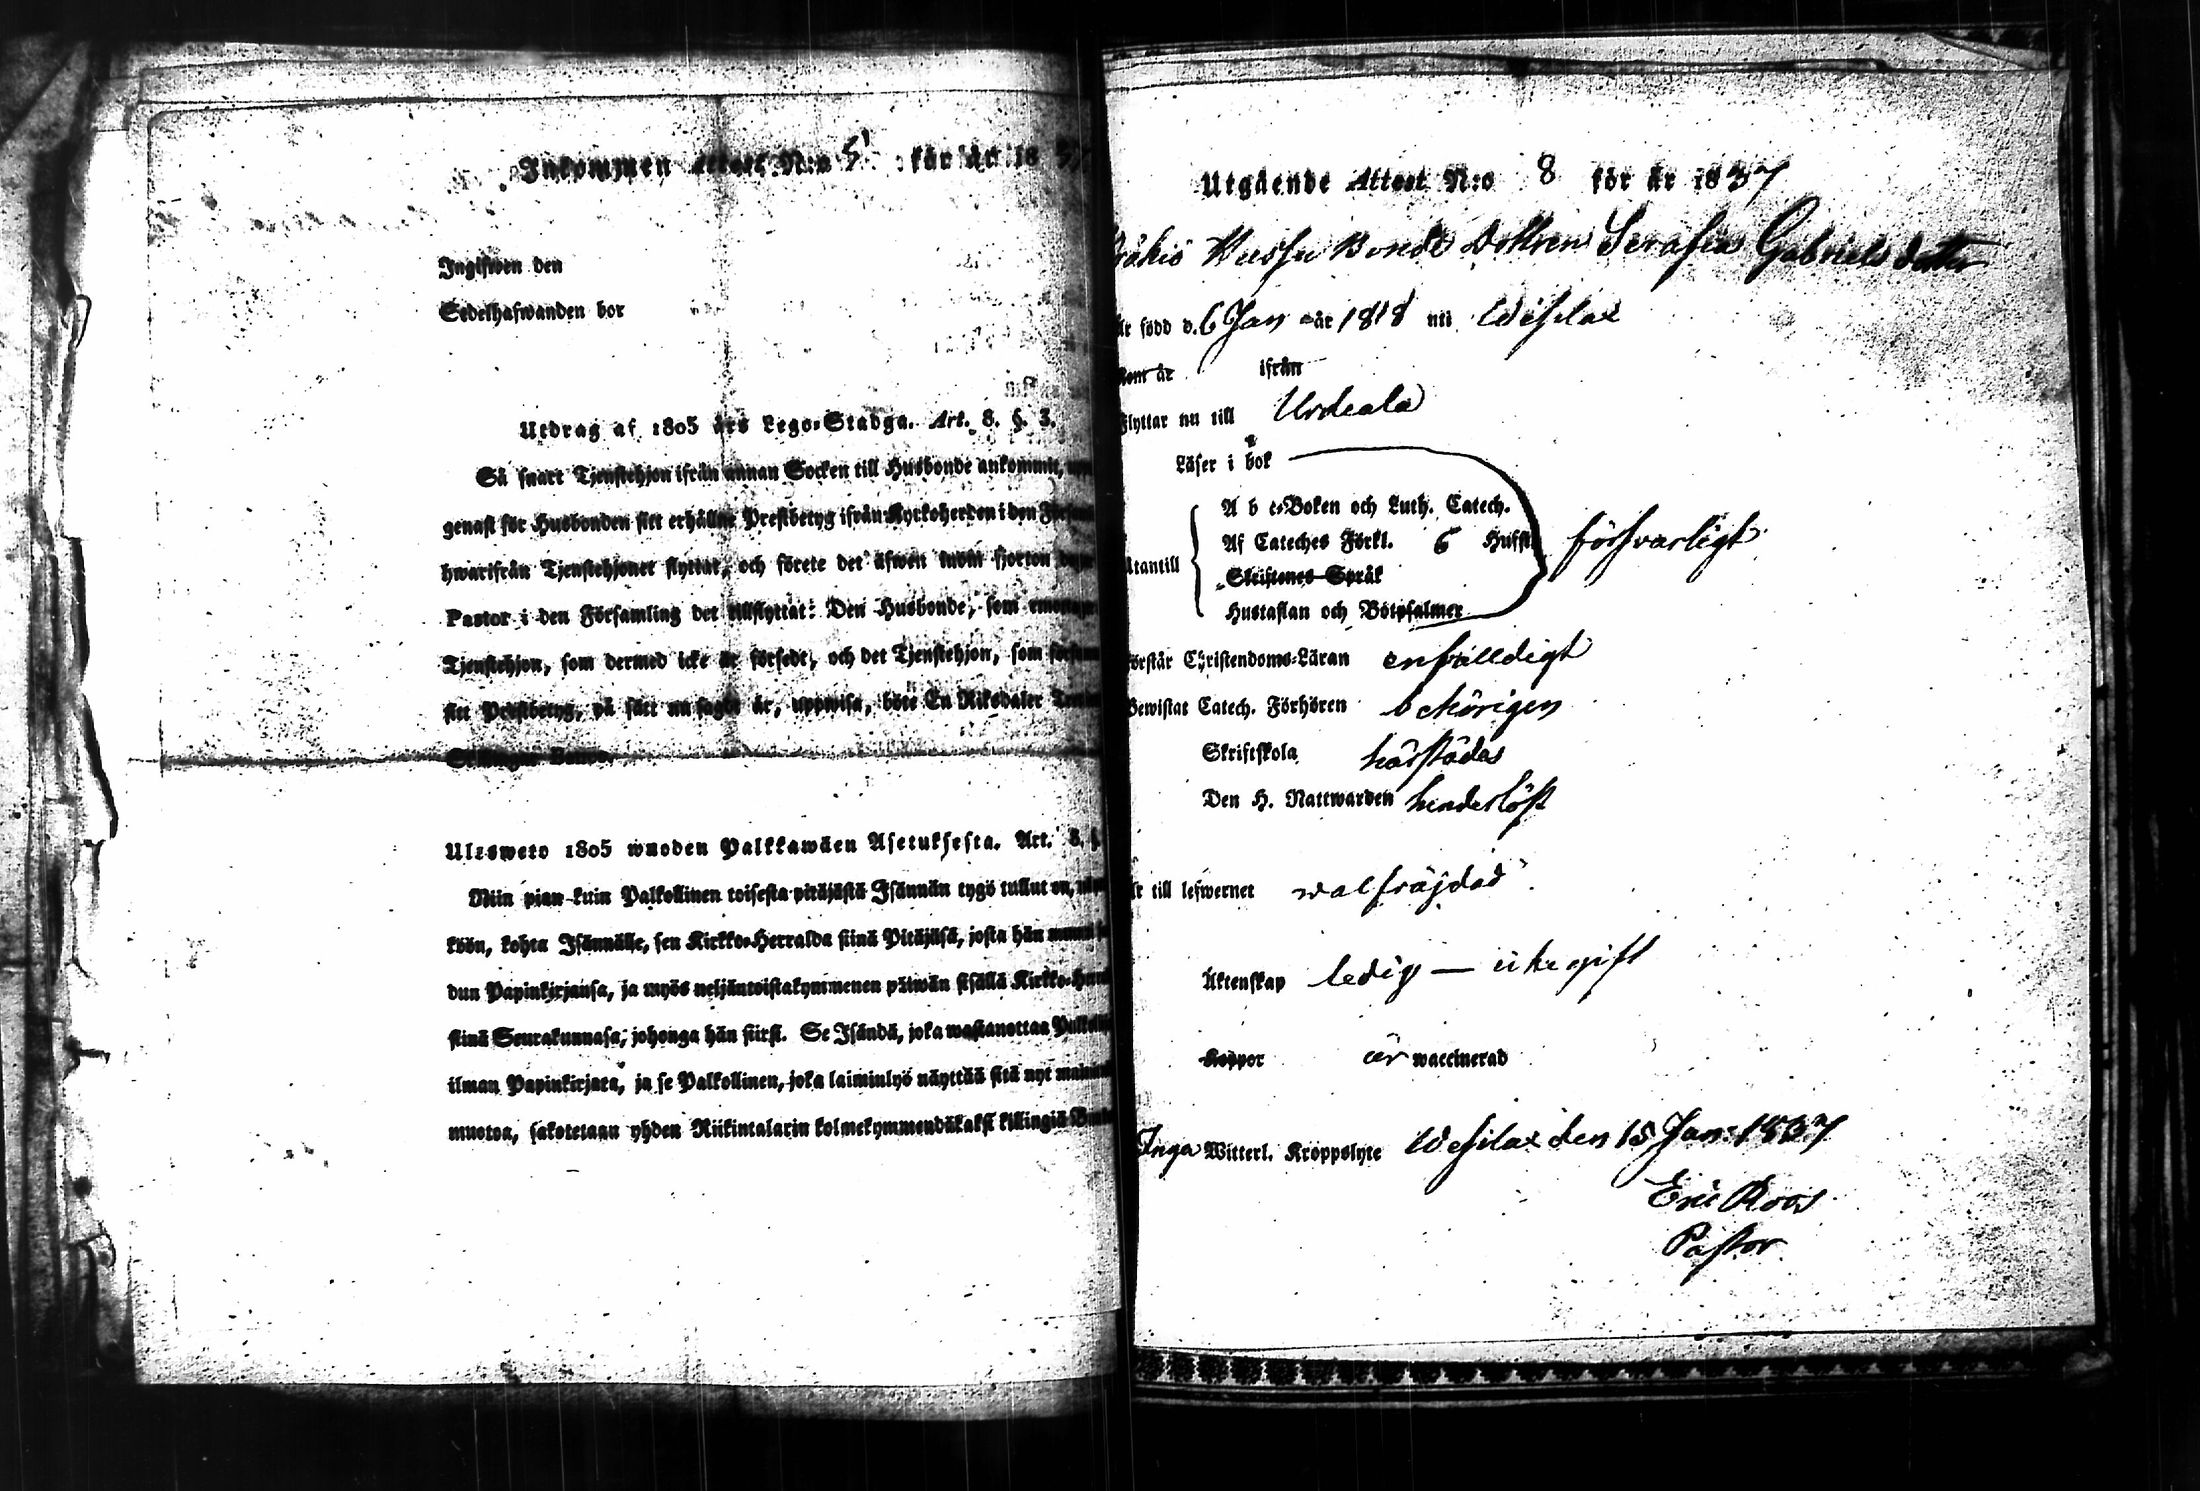 Inkommen Attest N:o 5 för år 18 37
Ingifwen den
Sedelhafwanden bor
Utdrag af 1805 års Lego-Stadga. Art. 8. §. 3.
Så snart Tjenstehjon ifrån annan Socken till Husbonde ankommit,
genast för Husbonden sitt erhållne Prestbetyg ifrån Kyrkoherden i den
hwarifrån Tjenstehjonet flyttat, och förete det äfwen inom fjorton
Pastor i den Församling det tillflyttat: Den Husbonde, som
Tjenstehjon, som dermed icke är försedt, och det Tjenstehjon, som
sitt Prestbetyg, på sätt nu sagdt är, uppwisa, böte En Riksdaler
Skillingar Banco.
Ulosweto 1805 wuoden Palkkawäen Asetuksesta. Art. 8. §.
Niin pian kuin Palkollinen toisesta pitäjästä Isännän tygö tullut on,
köön, kohta Isännälle, sen Kirkko-Herralda siinä Pitäjäsä, josta hän
dun Papinkirjansa, ja myös neljäntoistakymmenen päiwän sisällä Kirkko-
siinä Seurakunnasa, johonga hän siirsi. Se Isändä, joka wastanottaa
ilman Papinkirjata, ja se Palkollinen, joka laiminlyö näyttää sitä nyt
muotoa, sakotetaan yhden Riikintalarin kolmekymmendäkaksi killingiä
Utgående Attest N:o 8 för år 1837
Bonde Dottren Serafia Gabriels dotter
är född d. 6 Jan år 1818 uti Wesilax
Kom år ifrån
Flyttar nu till Urdeala
Läser i bok
A b c-Boken och Luth. Catech.
Af Cateches Förkl. 6 Hufst. försvarligt
Utantill
Skriftenes Språk
Hustaflan och Botpsalmer
Förstår Christendoms-Läran enfalldigt
Bewistat Catech. Förhören behörigen
Skriftskola härstädes
Den H. Nattwarden hinderlöst
Är till lefwernet walfräjdad
Äktenskap ledig — icke gift
Koppor är waccinerad
Inga Witterl. Kroppslyte Wesilax den 15 Jan: 1837
Eric Roos
Pastor